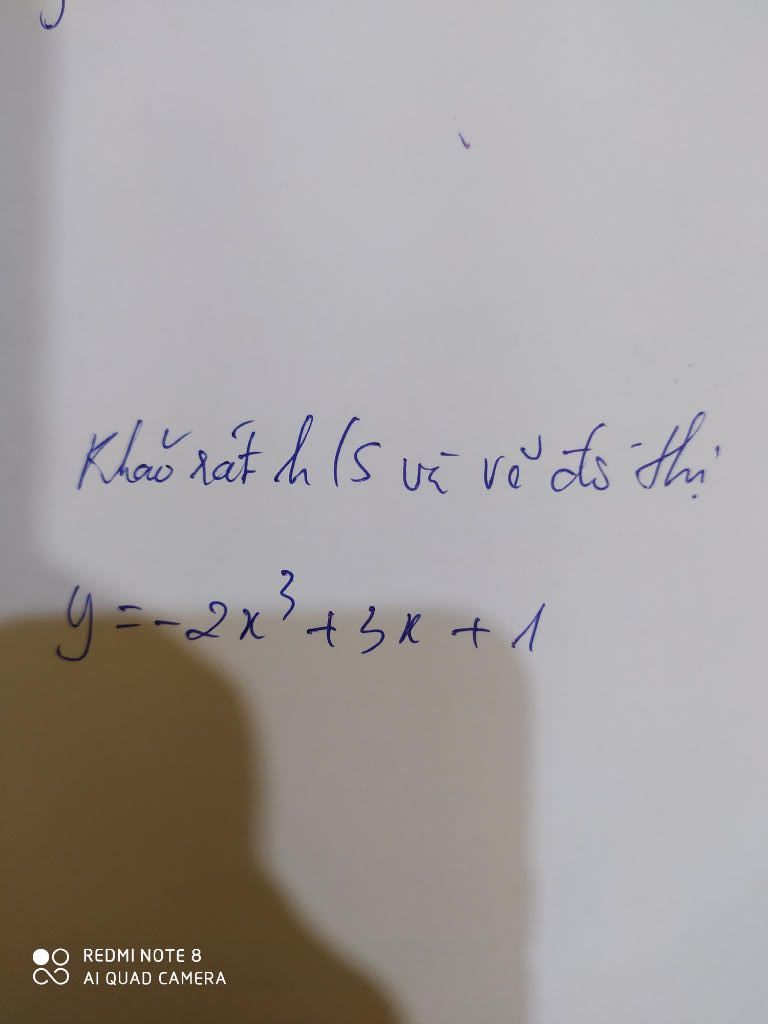 Khảo sát h/s và vẽ đồ thị
y = -2x³ + 3x + 1
REDMI NOTE 8
AI QUAD CAMERA